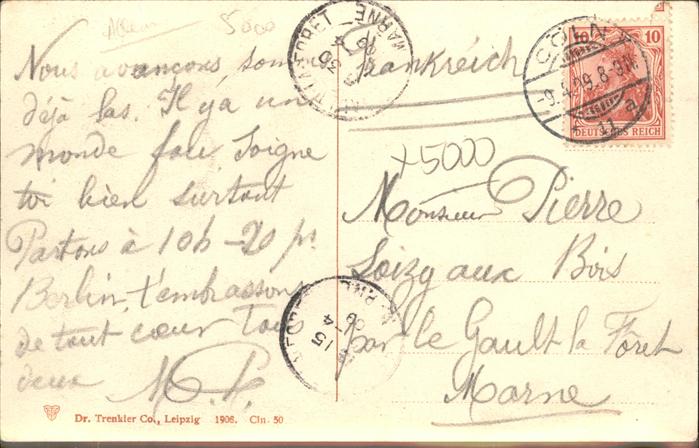 5000
Nous avançons, som
déjà las. Il y a un
monde fou Soigne
toi bien surtout
Partons à 10h-20 pr
Berlin, t'embrassons
de tout cœur Tous
deux M. P.
Frankreich
+5000
Monsieur Pierre
Loizy aux Bois
par le Gault la Foret
Marne
CÖLN
11 a
10 10
DEUTSCHES REICH
MARNE
15
Dr. Trenkler Co., Leipzig 1906. Cln. 50